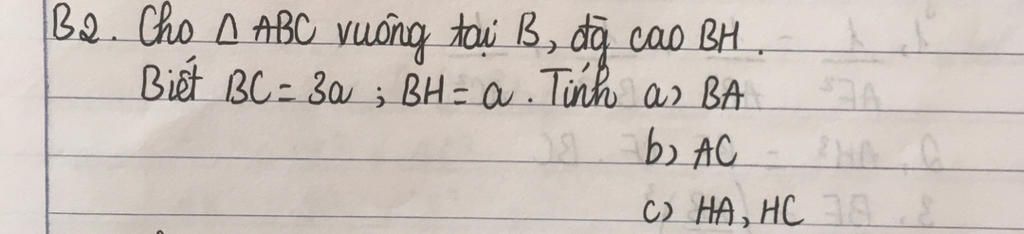 B2. Cho Δ ABC vuông tại B, đg cao BH.
Biết BC = 3a ; BH = a. Tính a) BA
b) AC
c) HA, HC